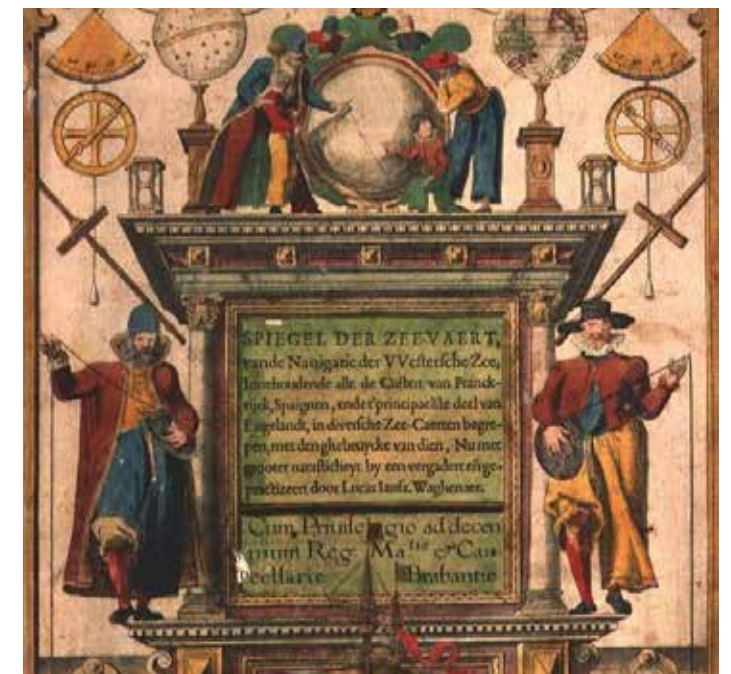 SPIEGEL DER ZEEVAERT,
vande Navigatie der VVestersche Zee,
Innehoudende alle de Custen van Franck-
rijck, Spaignen, ende t'principaelste deel van
Engelandt, in diversche Zee-Caerten begre-
pen, met den ghebruycke van dien, Nu met
grooter naersticheyt by een vergadert en ge-
practizeert door Lucas Iansz. Waghenaer.
Cum Priuilegio ad decen
nium Reg. Ma.tis & Can
cellarie Brabantie